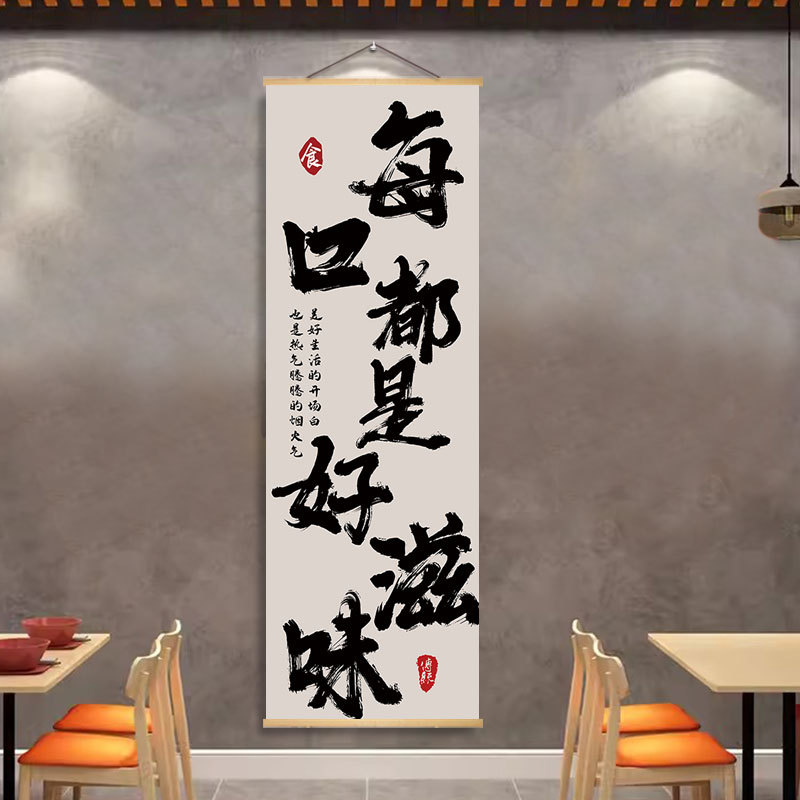 食
每口都是好滋味
是好生活的开场白
也是热气腾腾的烟火气